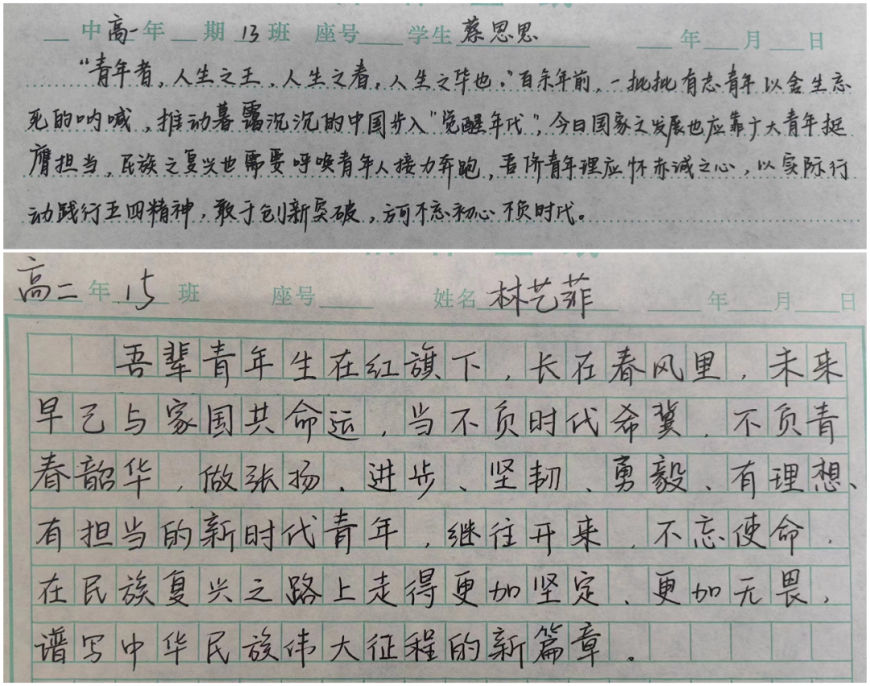 中高一年 期13班 座号 学生 蔡思思 年 月 日
“青年者，人生之王，人生之春，人生之华也。”百余年前，一批批有志青年以舍生忘
死的呐喊，推动暮霭沉沉的中国步入“觉醒年代”，今日国家之发展也应靠广大青年挺
膺担当，民族之复兴也需要呼唤青年人接力奔跑，吾侪青年理应怀赤诚之心，以实际行
动践行五四精神，敢于创新突破，方可不忘初心不负时代。
高二年 15班 座号 姓名 林艺菲 年 月 日
吾辈青年生在红旗下，长在春风里，未来
早已与家国共命运，当不负时代希冀，不负青
春韶华，做张扬、进步、坚韧、勇毅、有理想、
有担当的新时代青年，继往开来，不忘使命，
在民族复兴之路上走得更加坚定、更加无畏，
谱写中华民族伟大征程的新篇章。